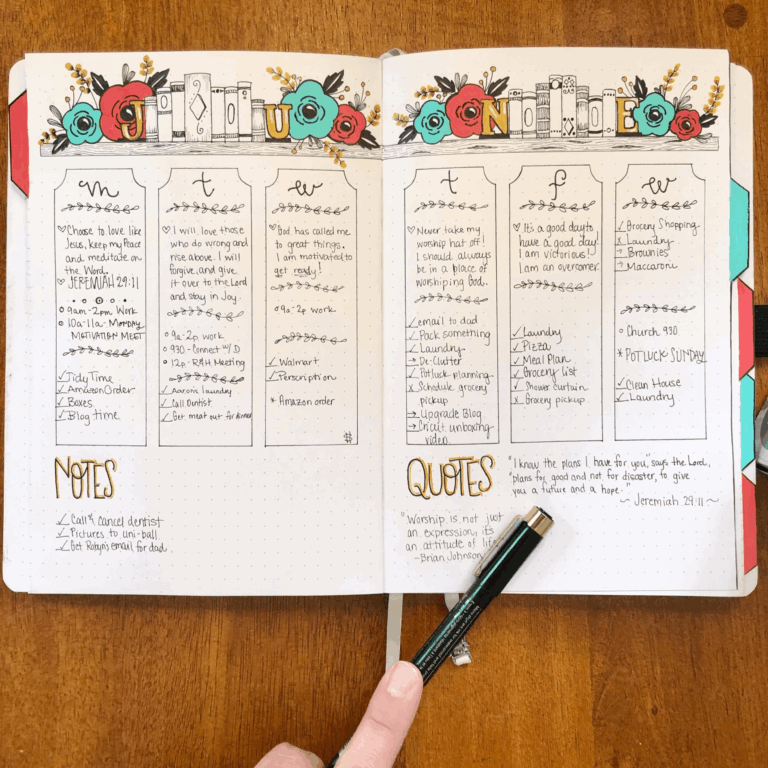 JU
NE
m
♡ Choose to love like
Jesus, keep my Peace
and meditate on
the Word.
♡ JEREMIAH 29:11
9am-2pm Work
10a-11a- MONDAY
MOTIVATION MEET
✓ Tidy Time
✓ Amazon Order
✓ Boxes
✓ Blog time
t
♡ I will love those
who do wrong and
rise above. I will
forgive, and give
it over to the Lord
and stay in Joy.
9a-2p work
930 - Connect w/D
12p R&H Meeting
✓ Aarons laundry
✓ Call Dentist
✓ Get meat out for dinner
w
♡ God has called me
to great things.
I am motivated to
get ready!
9a-2p work
✓ Walmart
✓ Perscription
* Amazon order
t
♡ Never take my
worship hat off!
I should always
be in a place of
worshiping God.
✓ email to dad
✓ Pack something
✓ Laundry
→ De-Clutter
✓ Potluck planning
x Schedule grocery
pickup
→ Upgrade Blog
→ Cricut unboxing
video
f
♡ It's a good day to
have a good day!
I am victorious!
I am an overcomer.
✓ Laundry
✓ Pizza
✓ Meal Plan
✓ Grocery list
✓ Shower curtain
x Grocery pickup
w
✓ Grocery Shopping
x Laundry
→ Brownies
→ Maccaroni
Church 930
* POTLUCK SUNDAY
✓ Clean House
✓ Laundry
NOTES
✓ Call & cancel dentist
✓ Pictures to uni-ball
✓ Get Robyn's email for dad
QUOTES
"I know the plans I have for you," says the Lord,
"plans for good and not for disaster, to give
you a future and a hope."
~ Jeremiah 29:11 ~
"Worship is not just
an expression, it's
an attitude of life
-Brian Johnson